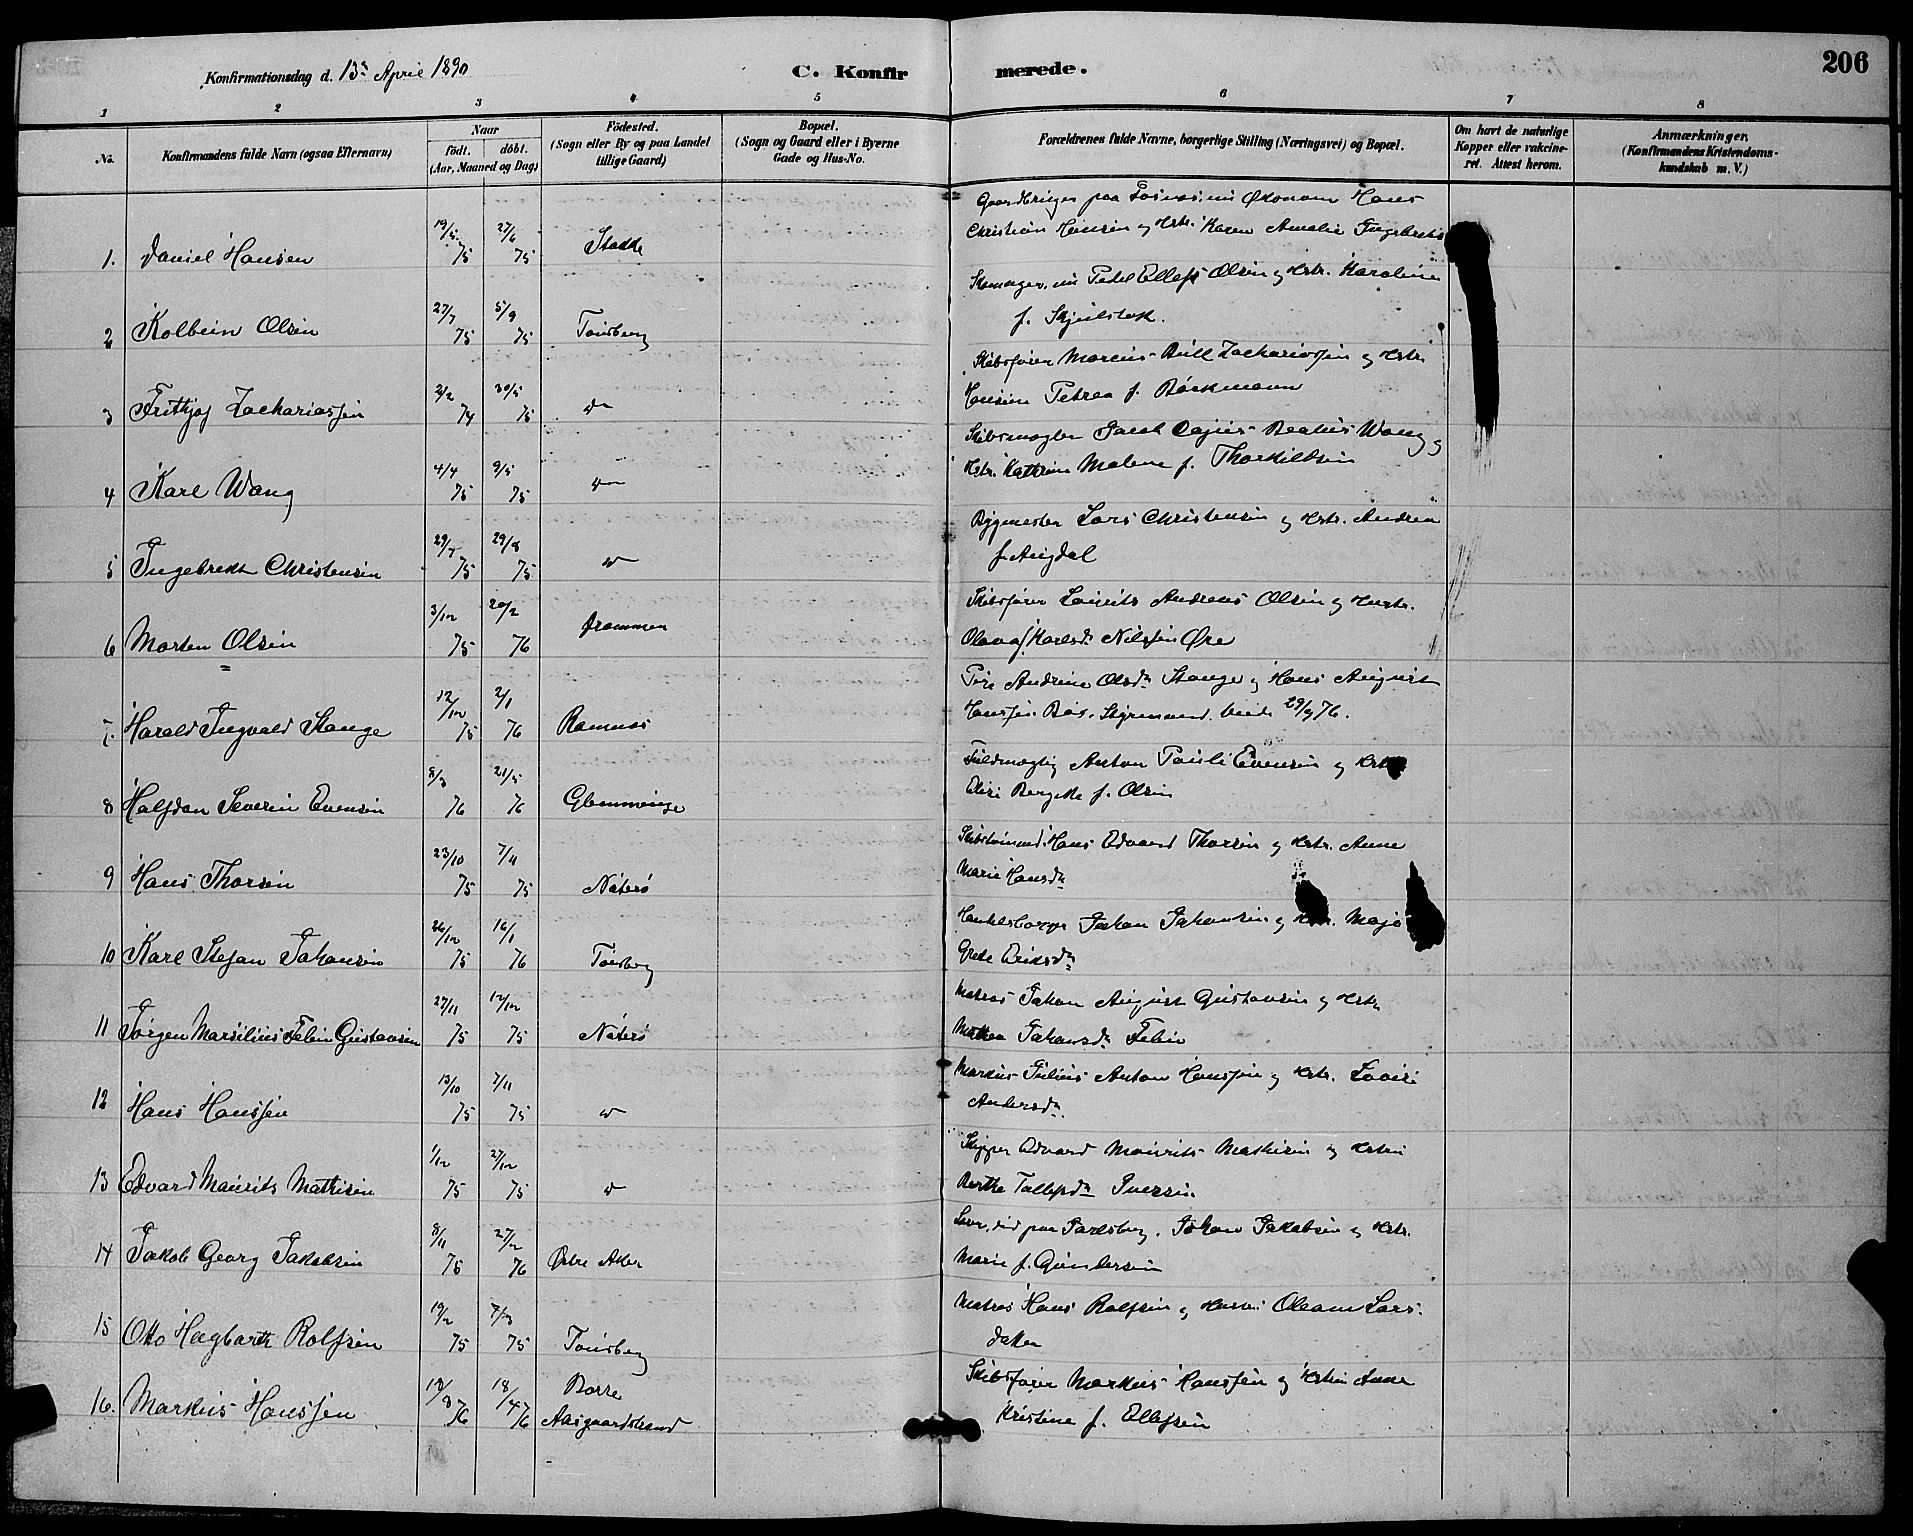 206
Konfirmationsdag d. 13de April 1890
C. Konfirmerede.
1 2 3 4 5 6 7 8
No.
Konfirmandens fulde Navn (ogsaa Efternavn)
Naar
födt. döbt.
(Aar, Maaned og Dag)
Födested.
(Sogn eller By og paa Landet
tillige Gaard)
Bopæl.
(Sogn og Gaard eller i Byerne
Gade og Hus-No.
Forældrenes fulde Navne, borgerlige Stilling (Næringsvei) og Bopæl.
Om havt de naturlige
Kopper eller vakcine-
ret. Attest herom.
Anmærkninger,
(Konfirmandens Kristendoms-
kundskab m. V.)
1. Daniel Hansen 75 27/6 75 Stokke
Økonom Hans
Christian Hansen og Hstr. Karen Amalie Ingebrets
2 Kolbein Olsen 27/7 75 5/9 75 Tönsberg
Olsen og Hstr. Karoline
f.
3 Frithjof Zachariassen 2/2 74 30/5 75 "
Skibsförer Marcus Bull Zachariassen og Hstr.
Hansine Petrea f. Böckmann
4 Karl Wang 4/4 75 9/5 75 "
Skibsmægler Jacob Beatus Wang og
Hstr. Kathrine Malene f. Thorkildsen
5 Ingebrekt Christensen 29/7 75 29/8 75 "
Bygmester Lars Christensen og Hstr. Andrea
f.
6 Morten Olsen 3/12 75 20/2 76 Drammen
Skibsförer Lauritz Andreas Olsen og Hustr.
Olava Nilssen Øre
7. Harald Ingvald Stange 12/12 75 2/1 76 Ramnes
Pige Andrine Olsdr Stange og Hans August
Hanssen Styrmand. 29/9 76.
8 Halfdan Severin Evensen 8/3 76 21/5 76 Glemminge
Fuldmægtig Anton Pauli Evensen og Hstr
Elise Bergitte f. Olsen
9 Hans Thorsen 23/10 75 7/11 75 Nöterö
Skibstömmd. Hans Edvard Thorsen og Hstr. Anne
Marie Hansdr
10 Karl Stefan Johansen 26/12 75 16/1 76 Tönsberg
Johan Johansen og Hstr. Maja
Grete Eriksdr
11 Jörgen Marsilius Felin Gustavsen 27/11 75 12/12 75 Nöterö
Matros Johan August Gustavsen og Hstr
Mathea Johansdr Felin
12 Hans Hanssen 13/10 75 7/11 75 "
Markus Julius Anton Hanssen og Hstr. Lovise
Andersdr.
13 Edvard Mauritz Mathisen 1/12 75 27/12 75 "
Skipper Edvard Mauritz Mathisen og Hstru
Berthe Tollefsdr Iversen
14 Jakob Georg Jakobsen 8/11 75 27/2 76 Østre Aker
paa Jarlsberg. Johan Jakobsen og Hstr.
Marie f. Gundersen
15 Otto Hagbarth Rolfsen 19/2 75 7/3 75 Tönsberg
Matros Hans Rolfsen og Hustru Oleane Lars-
datter
16. Markus Hanssen 18/3 76 18/4 76 Borre
Aasgaardstrand
Skibsförer Markus Hanssen og Hstru Anne
Kristine f. Ellefsen